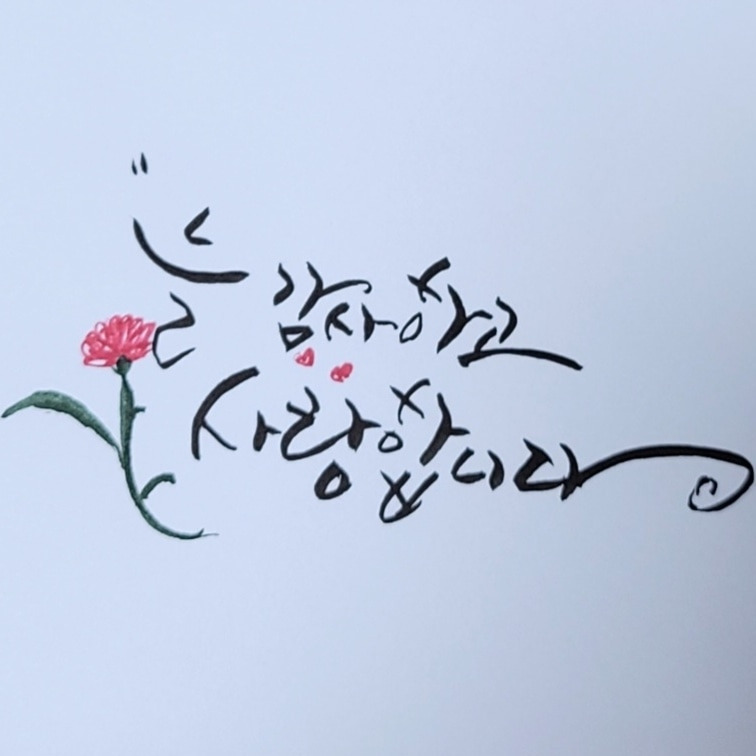 "늘 감사하고
사랑합니다